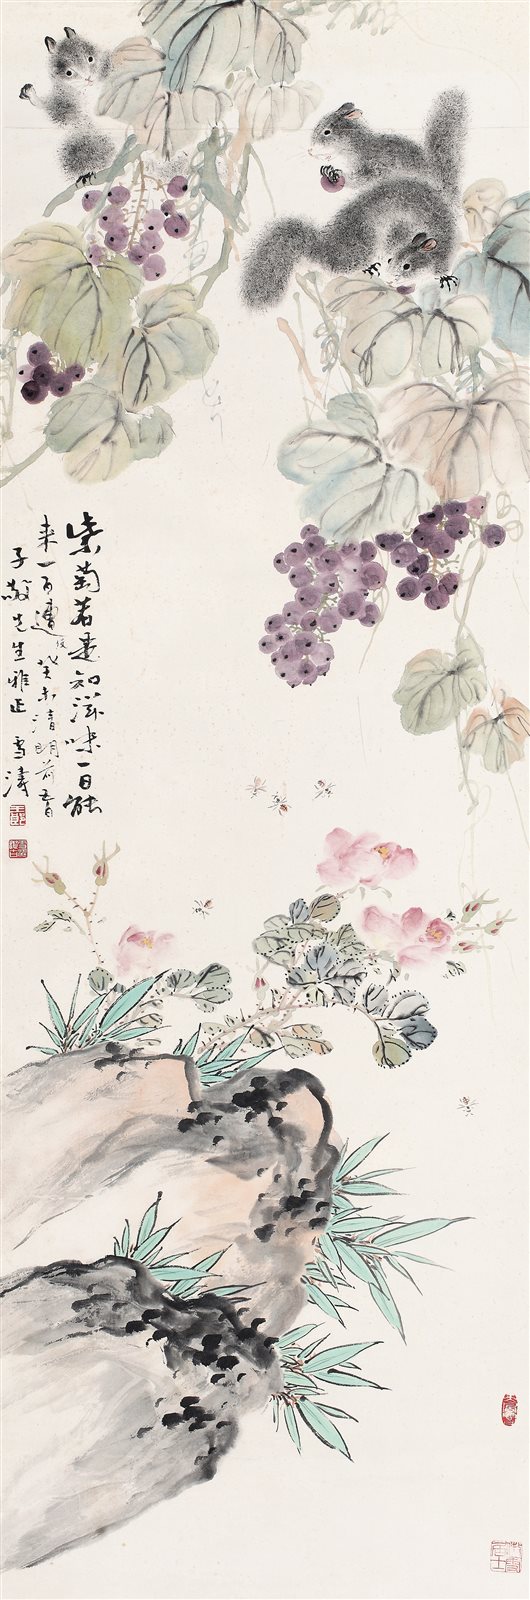 紫萄若还知滋味一日能
来一百遭 癸未清明前五日
子敬先生雅正 雪涛